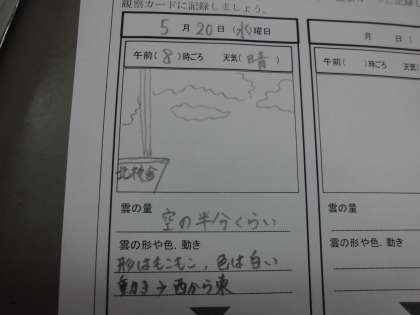 観察カードに記録しましょう。
5月20日(水)曜日
午前(8)時ごろ 天気(晴)
北校舎
雲の量
空の半分くらい
雲の形や色、動き
形はもこもこ、色は白い
動き→西から東
月 日(
午前( )時ごろ
雲の量
雲の形や色、動き